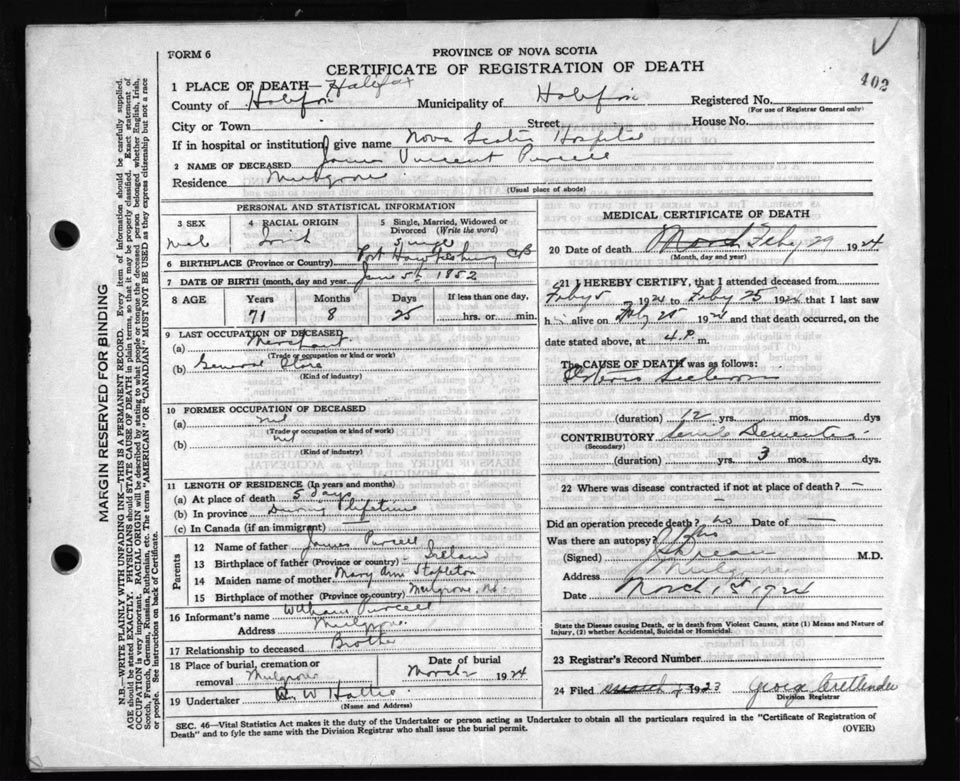 FORM 6
PROVINCE OF NOVA SCOTIA
CERTIFICATE OF REGISTRATION OF DEATH
402
1 PLACE OF DEATH— Halifax
County of Halifax Municipality of Halifax Registered No.
(For use of Registrar General only)
City or Town Street House No.
If in hospital or institution, give name Nova Scotia Hospital
2 NAME OF DECEASED James Vincent Purcell
Residence Mulgrave
(Usual place of abode)
PERSONAL AND STATISTICAL INFORMATION
3 SEX
Male
4 RACIAL ORIGIN
Irish
5 Single, Married, Widowed or Divorced (Write the word)
Single
6 BIRTHPLACE (Province or Country) Port Hawkesbury CB
7 DATE OF BIRTH (month, day and year) June 5th 1852
8 AGE Years Months Days If less than one day,
71 8 25 hrs. or min.
9 LAST OCCUPATION OF DECEASED
(a) Merchant
(Trade or occupation or kind or work)
(b) General Store
(Kind of industry)
10 FORMER OCCUPATION OF DECEASED
(a) nil
(Trade or occupation or kind of work)
(b) nil
(Kind of industry)
11 LENGTH OF RESIDENCE (In years and months)
(a) At place of death 5 days
(b) In province During lifetime
(c) In Canada (if an immigrant) —
Parents
12 Name of father James Purcell
13 Birthplace of father (Province or country) Ireland
14 Maiden name of mother Mary Ann Stapleton
15 Birthplace of mother (Province or country) Mulgrave, N.S.
16 Informant's name William Purcell
Address Mulgrave
17 Relationship to deceased Brother
18 Place of burial, cremation or removal Mulgrave
Date of burial
March 2 1924
19 Undertaker W
(Name and Address)
MEDICAL CERTIFICATE OF DEATH
20 Date of death March Feby 29 1924
(Month, day and year)
21 I HEREBY CERTIFY, that I attended deceased from
Feby 5 1924 to Feby 25 1924 that I last saw
h alive on Feby 25 1924 and that death occurred, on
date stated above, at 4 P. m.
The CAUSE OF DEATH was as follows:
(duration) 12 yrs. mos. dys
CONTRIBUTORY Senile Dementia
(Secondary)
(duration) yrs. 3 mos. dys.
22 Where was disease contracted if not at place of death? —
Did an operation precede death? no Date of —
Was there an autopsy? no
(Signed) M.D.
Address Mulgrave
Date March 1st 1924
State the Disease causing Death, or in death from Violent Causes, state (1) Means and Nature of Injury, (2) whether Accidental, Suicidal or Homicidal.
23 Registrar's Record Number
24 Filed March 1923 George
Division Registrar
SEC. 46—Vital Statistics Act makes it the duty of the Undertaker or person acting as Undertaker to obtain all the particulars required in the "Certificate of Registration of
Death" and to fyle the same with the Division Registrar who shall issue the burial permit.
(OVER)
MARGIN RESERVED FOR BINDING
N.B.—WRITE PLAINLY WITH UNFADING INK—THIS IS A PERMANENT RECORD. Every item of information should be carefully supplied.
AGE should be stated EXACTLY. PHYSICIANS should STATE CAUSE OF DEATH in plain terms, so that it may be properly classified. Exact statement of
OCCUPATION is very important. RACIAL ORIGIN will be described by stating to what people or tongue the deceased person belonged whether English, Irish,
Scotch, French, German, Russian, Ruthenian, etc. The terms "AMERICAN" OR "CANADIAN" MUST NOT BE USED as they express citizenship but not a race
or people. See instructions on back of Certificate.